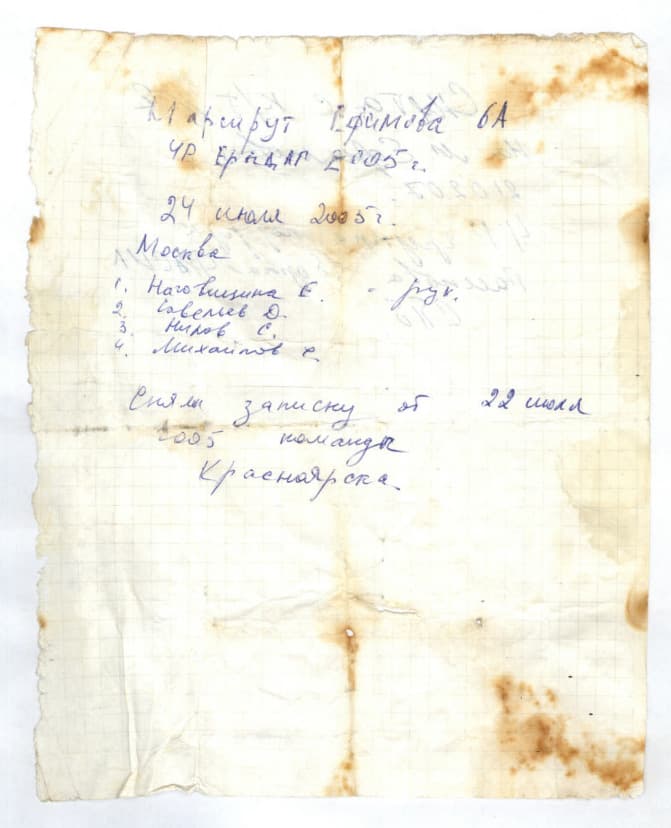 Маршрут Ефимова 6А
ЧР Ерыдаг 2005г.
24 июля 2005г.
Москва
1. Наговицина Е. - рук.
2. Д.
3. Нилов С.
4. Михайлов С.
Сняли записку от 22 июля
2005 команды
Красноярска